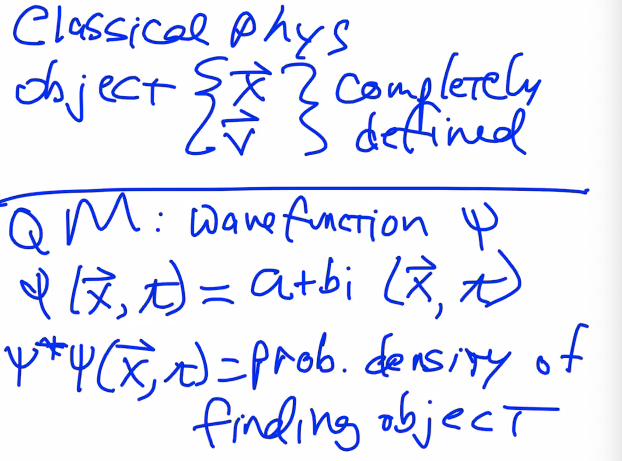 Classical Phys
object { x⃗ } completely
{ v⃗ } defined
QM: Wavefunction ψ
ψ(x⃗,t) = a+bi (x⃗,t)
ψ*ψ(x⃗,t) = prob. density of
finding object